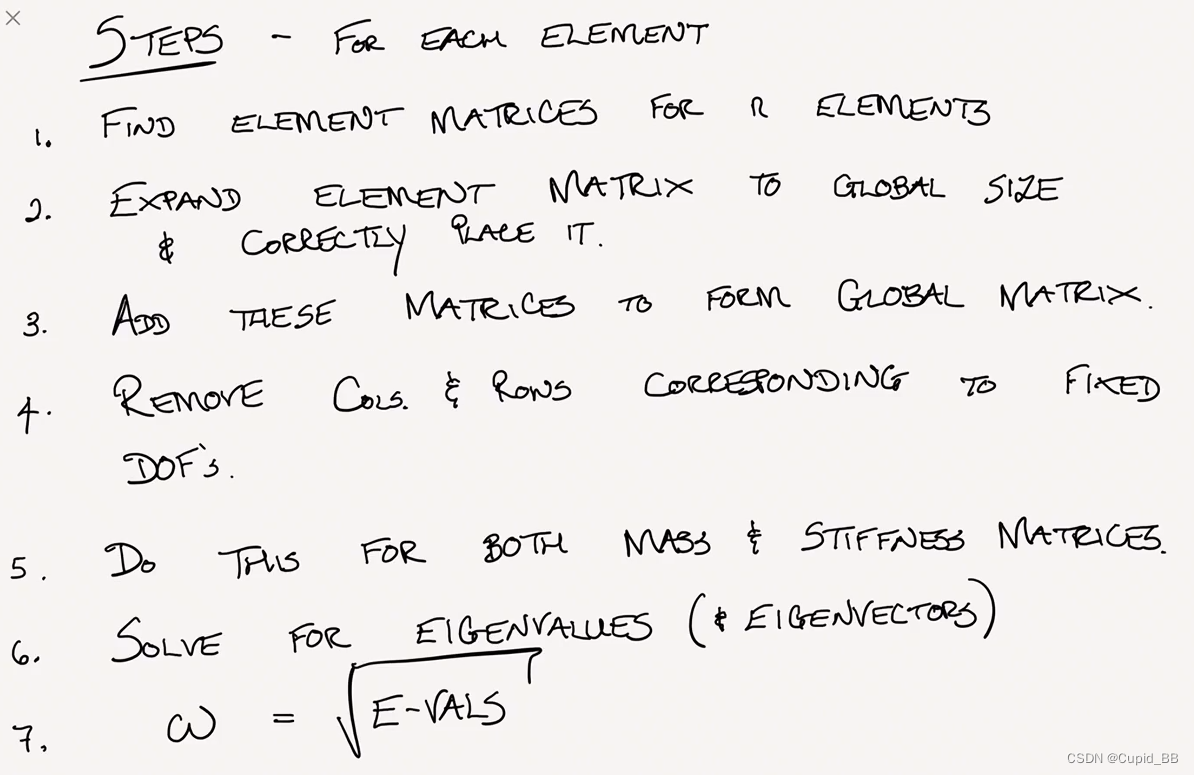 STEPS - FOR EACH ELEMENT
1. FIND ELEMENT MATRICES FOR n ELEMENTS
2. EXPAND ELEMENT MATRIX TO GLOBAL SIZE
& CORRECTLY PLACE IT.
3. ADD THESE MATRICES TO FORM GLOBAL MATRIX.
4. REMOVE COLS. & ROWS CORRESPONDING TO FIXED
DOF's.
5. DO THIS FOR BOTH MASS & STIFFNESS MATRICES.
6. SOLVE FOR EIGENVALUES (& EIGENVECTORS)
7. ω = √E-VALS
CSDN @Cupid_BB